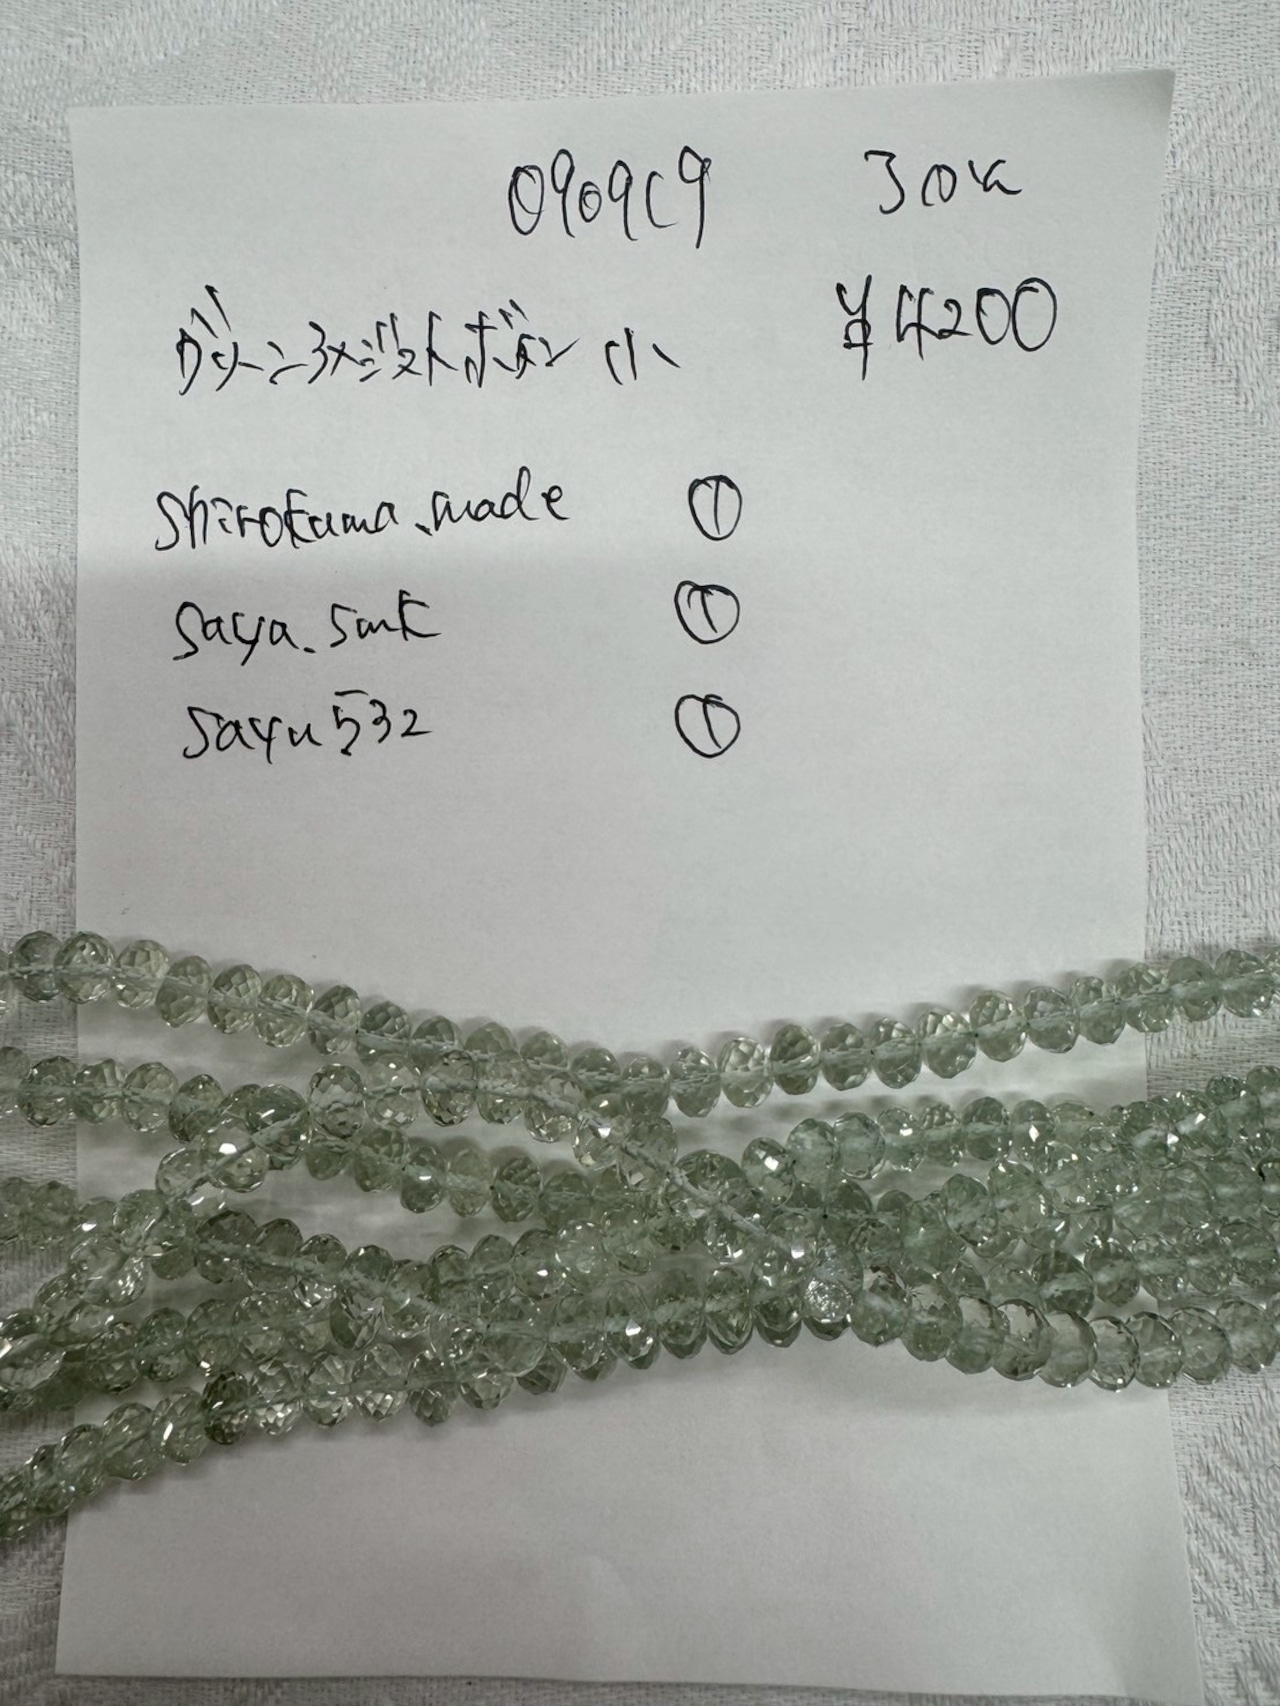 0909C9 30%
グリーンアメジストボタン 小 ¥4200
shirokuma.made ①
saya.smk ①
sayu532 ①